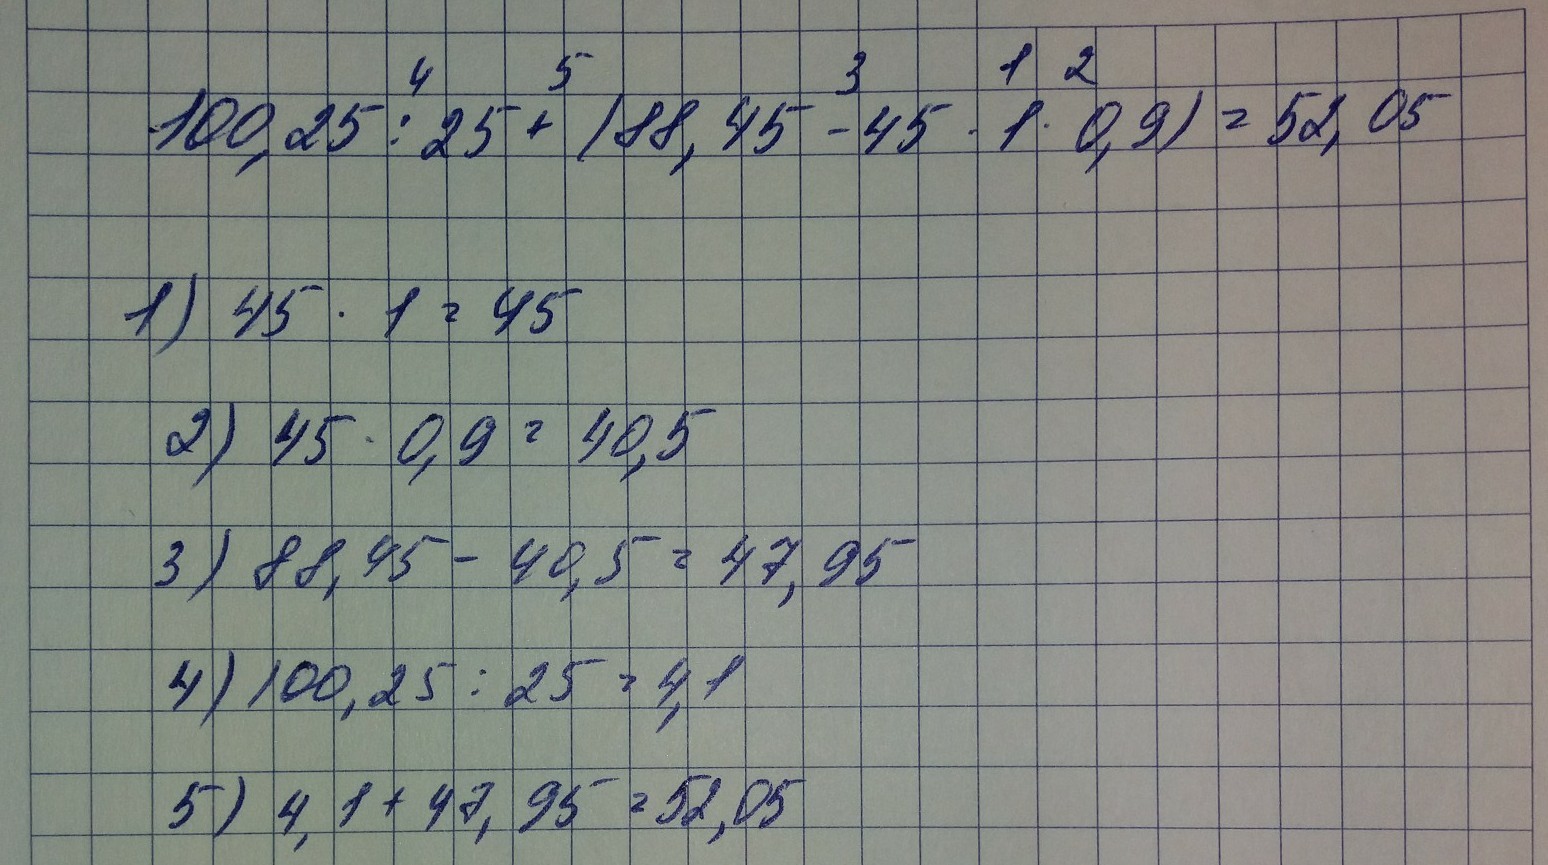 4 5 3 1 2
100,25 : 25 + (88,45 - 45 · 1 · 0,9) = 52,05
1) 45 · 1 = 45
2) 45 · 0,9 = 40,5
3) 88,45 - 40,5 = 47,95
4) 100,25 : 25 = 4,1
5) 4,1 + 47,95 = 52,05